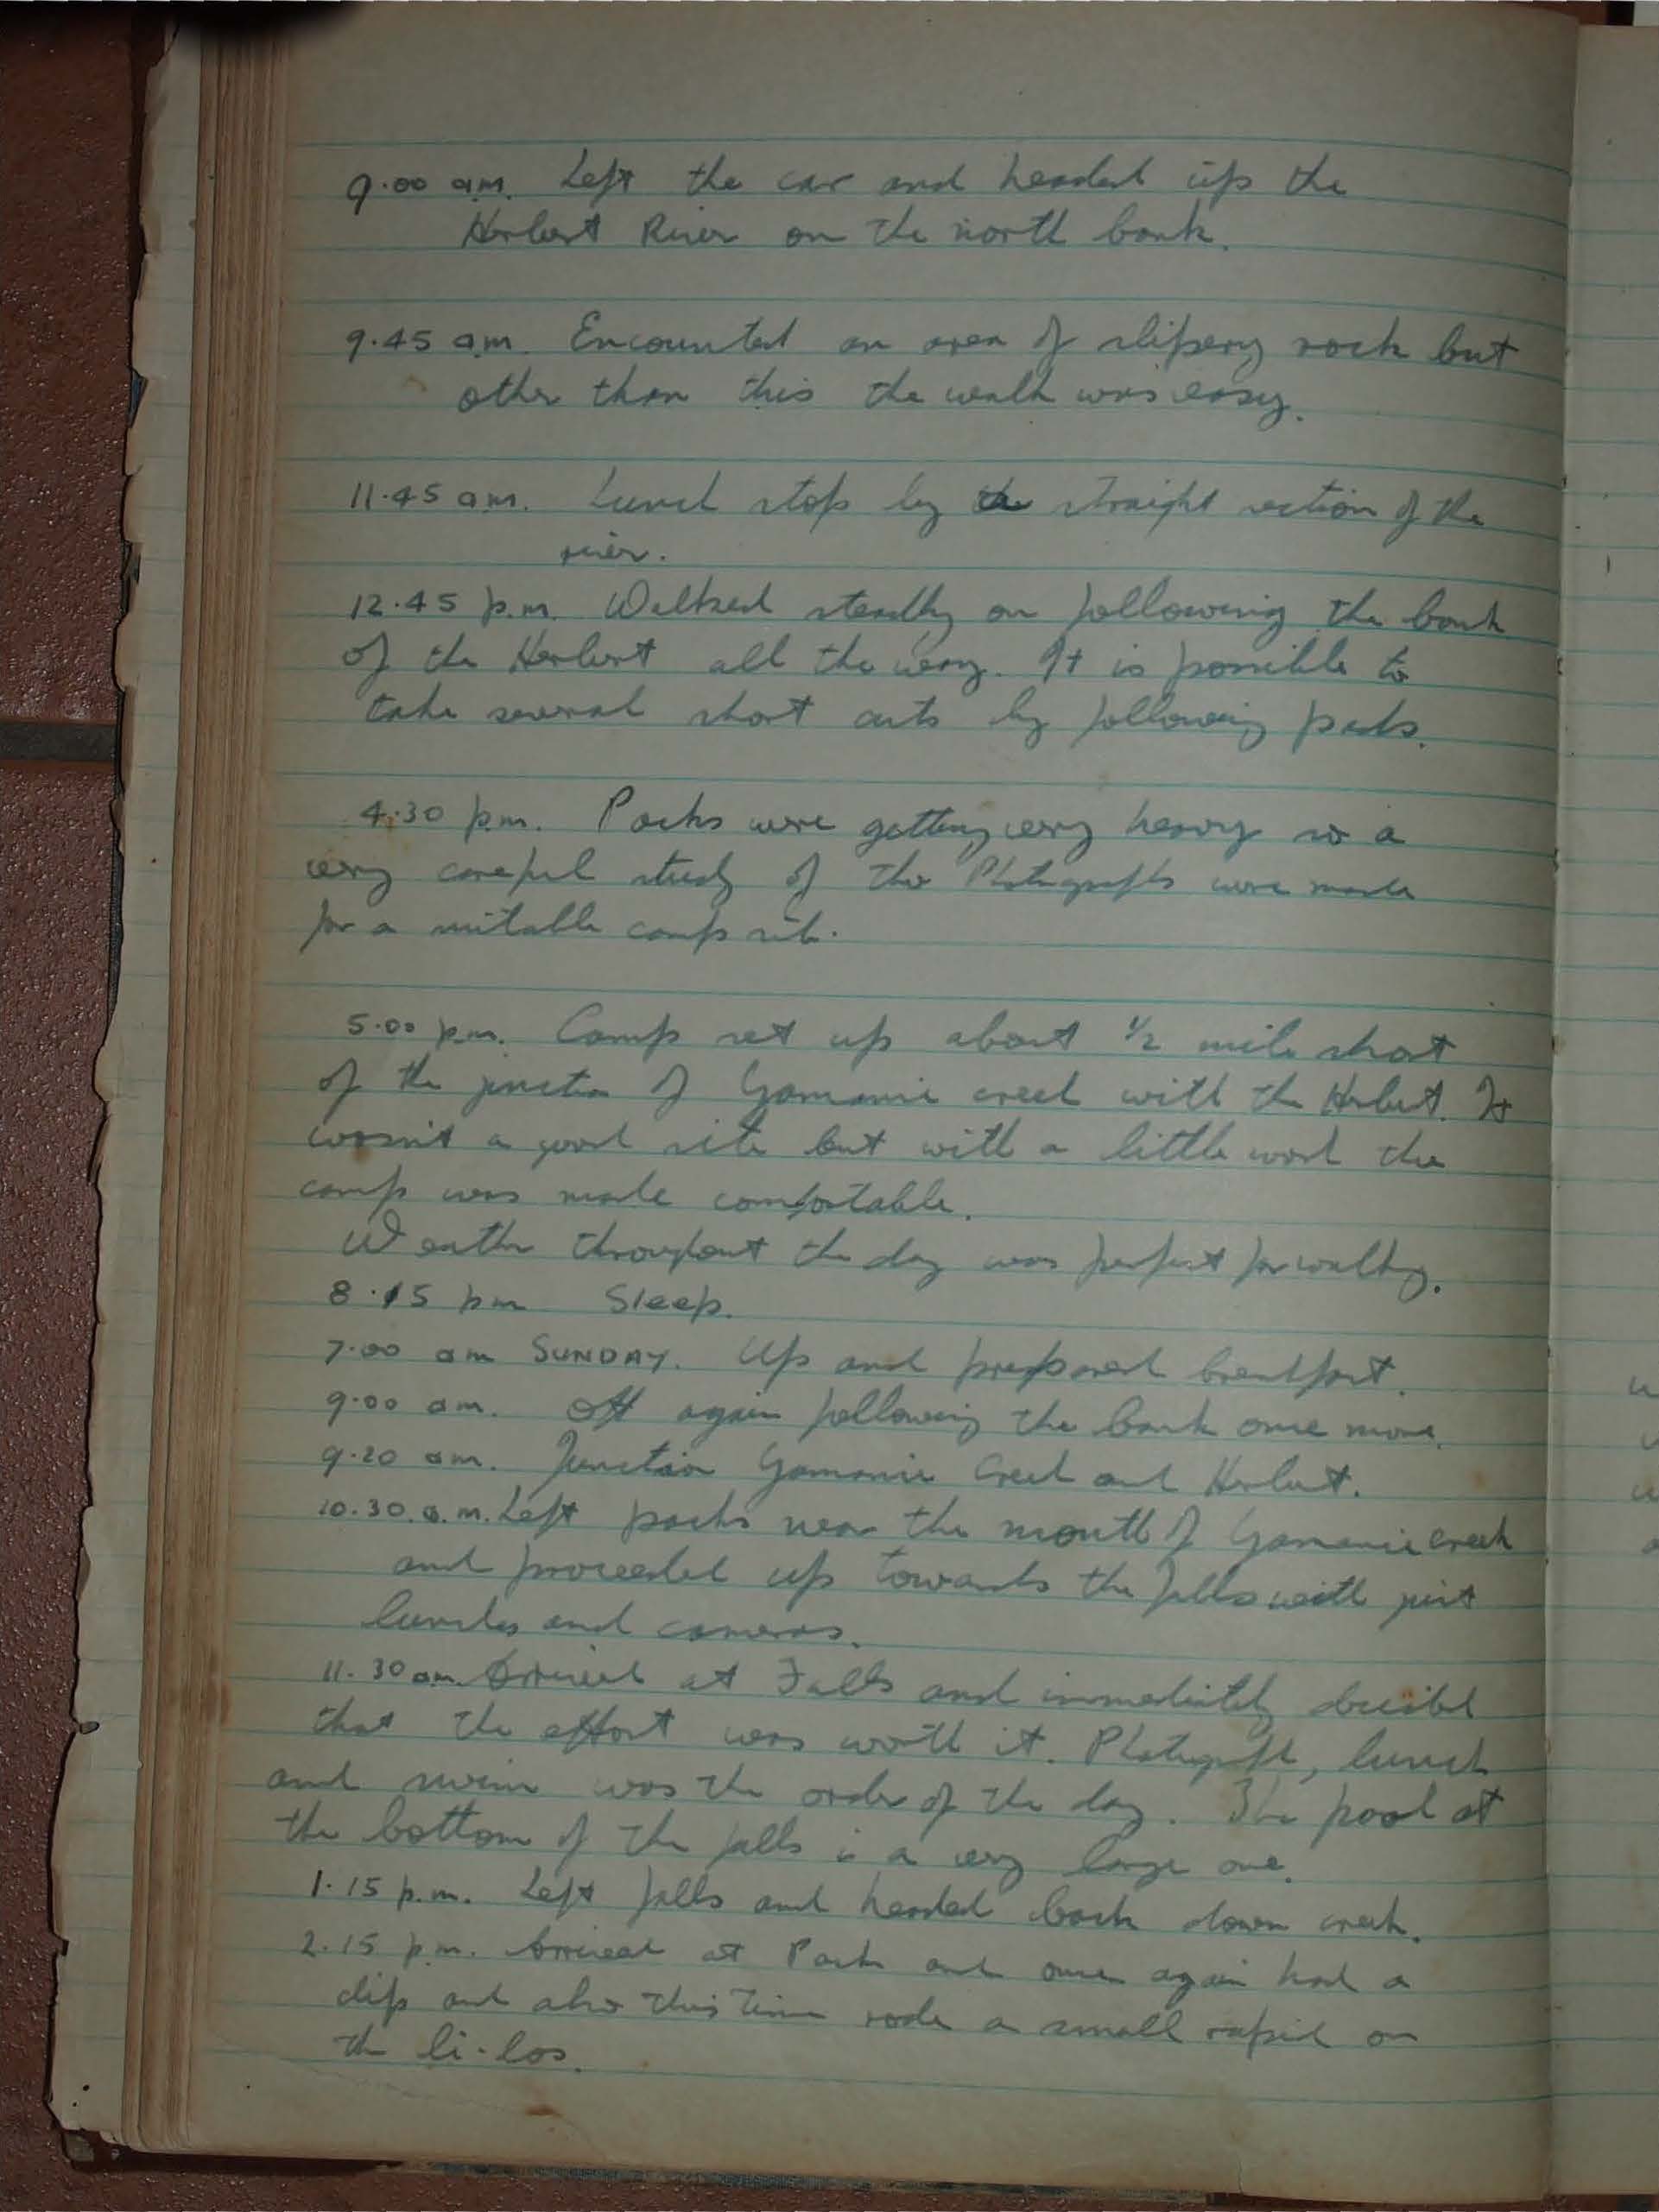 9.00 am. Left the car and headed up the
Herbert River on the north bank.
9.45 am. Encounted an area of slipery rock but
other than this the walk was easy.
11.45 am. Lunch stop by a straight section of the
river.
12.45 p.m. Walked steadly on following the bank
of the Herbert all the way. It is possible to
take several short cuts by following pads.
4.30 p.m. Packs were getting very heavy so a
very careful study of the Photographs were made
for a suitable camp site.
5.00 p.m. Camp set up about 1/2 mile short
of the junction of Gowrie creek with the Herbert. It
wasn't a good site but with a little work the
camp was made comfortable.
Weather throughout the day was perfect for walking.
8.15 pm Sleep.
7.00 am SUNDAY. Up and prepared breakfast.
9.00 am. Off again following the bank once more.
9.20 am. Junction Creek and Herbert.
10.30 a.m. Left packs near the mouth of creek
and proceeded up towards the falls with just
lunches and cameras.
11.30 am Arrived at Falls and immediately decided
that the effort was worth it. Photograph, lunch
and swim was the order of the day. The pool at
the bottom of the falls is a very large one.
1.15 p.m. Left falls and headed back down creek.
2.15 p.m. Arrived at Pack and once again had a
dip and also this time rode a small rapid on
the li-los.